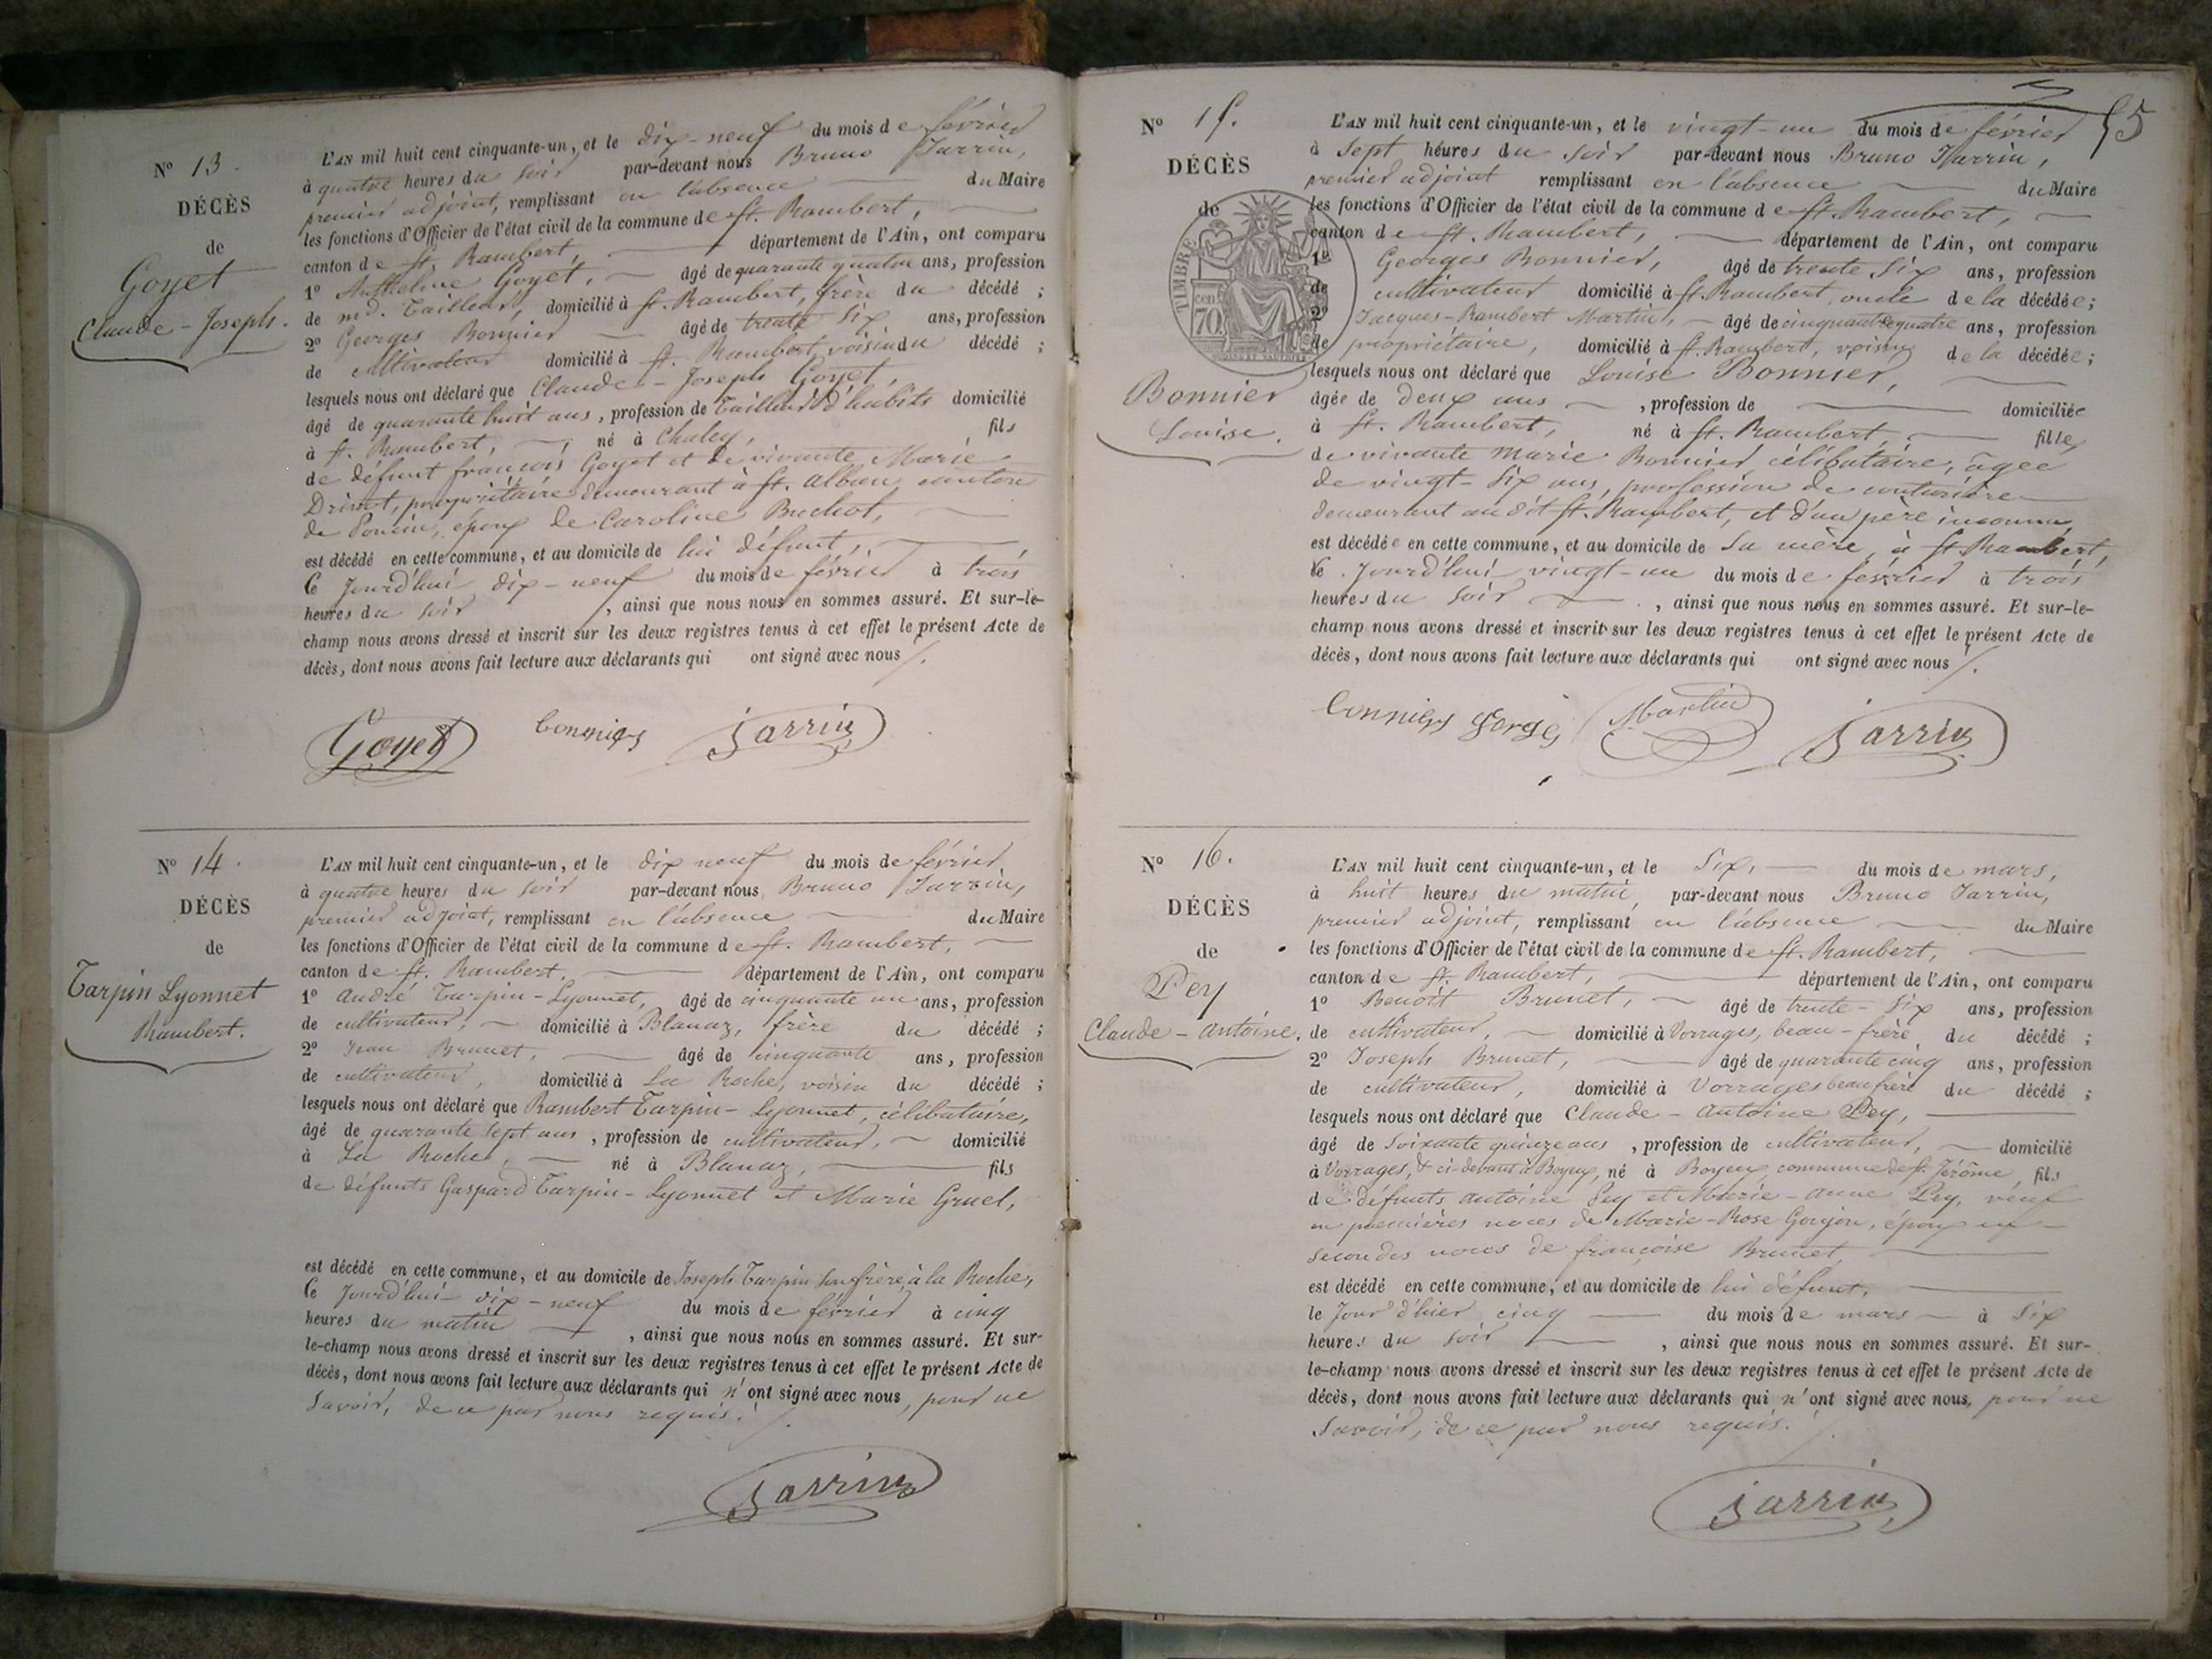 N° 13.
DÉCÈS
de
Goyet
Claude-Joseph.
L'AN mil huit cent cinquante-un, et le dix-neuf du mois de février
à quatre heures du soir par-devant nous Bruno Jarrin,
premier adjoint, remplissant en l'absence du Maire
les fonctions d'Officier de l'état civil de la commune de St. Rambert,
canton de St. Rambert, département de l'Ain, ont comparu
1° Anthelme Goyet, âgé de quarante quatre ans, profession
de md. Tailleur, domicilié à St. Rambert, frère du décédé ;
2° Georges Bonnier âgé de trente six ans, profession
de cultivateur domicilié à St. Rambert, voisin du décédé ;
lesquels nous ont déclaré que Claude-Joseph Goyet,
âgé de quarante huit ans, profession de Tailleur d'habits domicilié
à St. Rambert, né à Chaley, fils
de défunt françois Goyet et de vivante Marie
propriétaire demeurant à St. Alban, canton
de Poncin, époux de Caroline Buchot,
est décédé en cette commune, et au domicile de lui défunt,
Ce Jourd'hui dix-neuf du mois de février à trois
heures du soir , ainsi que nous nous en sommes assuré. Et sur-le-
champ nous avons dressé et inscrit sur les deux registres tenus à cet effet le présent Acte de
décès, dont nous avons fait lecture aux déclarants qui ont signé avec nous /.
Goyet bonniers Jarrin
N° 14.
DÉCÈS
de
Tarpin Lyonnet
Rambert.
L'AN mil huit cent cinquante-un, et le dix neuf du mois de février
à quatre heures du soir par-devant nous Bruno Jarrin,
premier adjoint, remplissant en l'absence du Maire
les fonctions d'Officier de l'état civil de la commune de St. Rambert,
canton de St. Rambert, département de l'Ain, ont comparu
1° André Tarpin-Lyonnet, âgé de cinquante un ans, profession
de cultivateur, domicilié à Blanaz, frère du décédé ;
2° Jean Brunet, âgé de cinquante ans, profession
de cultivateur, domicilié à La Roche, voisin du décédé ;
lesquels nous ont déclaré que Rambert Tarpin-Lyonnet, célibataire,
âgé de quarante sept ans, profession de cultivateur, domicilié
à La Roche, né à Blanaz, fils
de défunts Gaspard Tarpin-Lyonnet et Marie Gruel,
est décédé en cette commune, et au domicile de Joseph Tarpin son frère, à la Roche,
Ce Jourd'hui dix-neuf du mois de février à cinq
heures du matin , ainsi que nous nous en sommes assuré. Et sur-
le-champ nous avons dressé et inscrit sur les deux registres tenus à cet effet le présent Acte de
décès, dont nous avons fait lecture aux déclarants qui n'ont signé avec nous, pour ne
savoir, de ce par nous requis. /.
Jarrin
55
N° 15.
DÉCÈS
de
TIMBRE
70 cen
Bonnier
Louise.
L'AN mil huit cent cinquante-un, et le vingt-un du mois de février
à Sept heures du soir par-devant nous Bruno Jarrin,
premier adjoint remplissant en l'absence du Maire
les fonctions d'Officier de l'état civil de la commune de St. Rambert,
canton de St. Rambert, département de l'Ain, ont comparu
1° Georges Bonnier, âgé de trente six ans, profession
de cultivateur domicilié à St. Rambert, oncle de la décédée ;
2° Jacques-Rambert Martin, âgé de cinquante quatre ans, profession
de propriétaire, domicilié à St. Rambert, voisin de la décédée ;
lesquels nous ont déclaré que Louise Bonnier,
âgée de deux ans , profession de domiciliée
à St. Rambert, né à St. Rambert, fille
de vivante Marie Bonnier, célibataire, âgée
de vingt-six ans, profession de couturière
demeurant au dit St. Rambert, et d'un père inconnu,
est décédée en cette commune, et au domicile de sa mère, à St. Rambert,
Ce Jourd'hui vingt-un du mois de février à trois
heures du soir , ainsi que nous nous en sommes assuré. Et sur-le-
champ nous avons dressé et inscrit sur les deux registres tenus à cet effet le présent Acte de
décès, dont nous avons fait lecture aux déclarants qui ont signé avec nous /.
bonniers gorge Martin Jarrin
N° 16.
DÉCÈS
de
Pey
Claude-Antoine.
L'AN mil huit cent cinquante-un, et le six, du mois de mars,
à huit heures du matin, par-devant nous Bruno Jarrin,
premier adjoint, remplissant en l'absence du Maire
les fonctions d'Officier de l'état civil de la commune de St. Rambert,
canton de St. Rambert, département de l'Ain, ont comparu
1° Benoît Brunet, âgé de trente-six ans, profession
de cultivateur, domicilié à Vorrages, beau-frère du décédé ;
2° Joseph Brunet, âgé de quarante cinq ans, profession
de cultivateur, domicilié à Vorrages beau frère du décédé ;
lesquels nous ont déclaré que Claude-Antoine Pey,
âgé de soixante quinze ans, profession de cultivateur, domicilié
à Vorrages, & ci-devant à Boyeux, né à Boyeux commune de St. Jérôme, fils
de défunts Antoine Pey et Marie-Anne Pey, veuf
en premières noces de Marie-Rose Goujon, époux en
secondes noces de françoise Brunet
est décédé en cette commune, et au domicile de lui défunt,
le Jour d'hier cinq du mois de mars à six
heures du soir , ainsi que nous nous en sommes assuré. Et sur-
le-champ nous avons dressé et inscrit sur les deux registres tenus à cet effet le présent Acte de
décès, dont nous avons fait lecture aux déclarants qui n'ont signé avec nous, pour ne
savoir, de ce par nous requis. /.
Jarrin